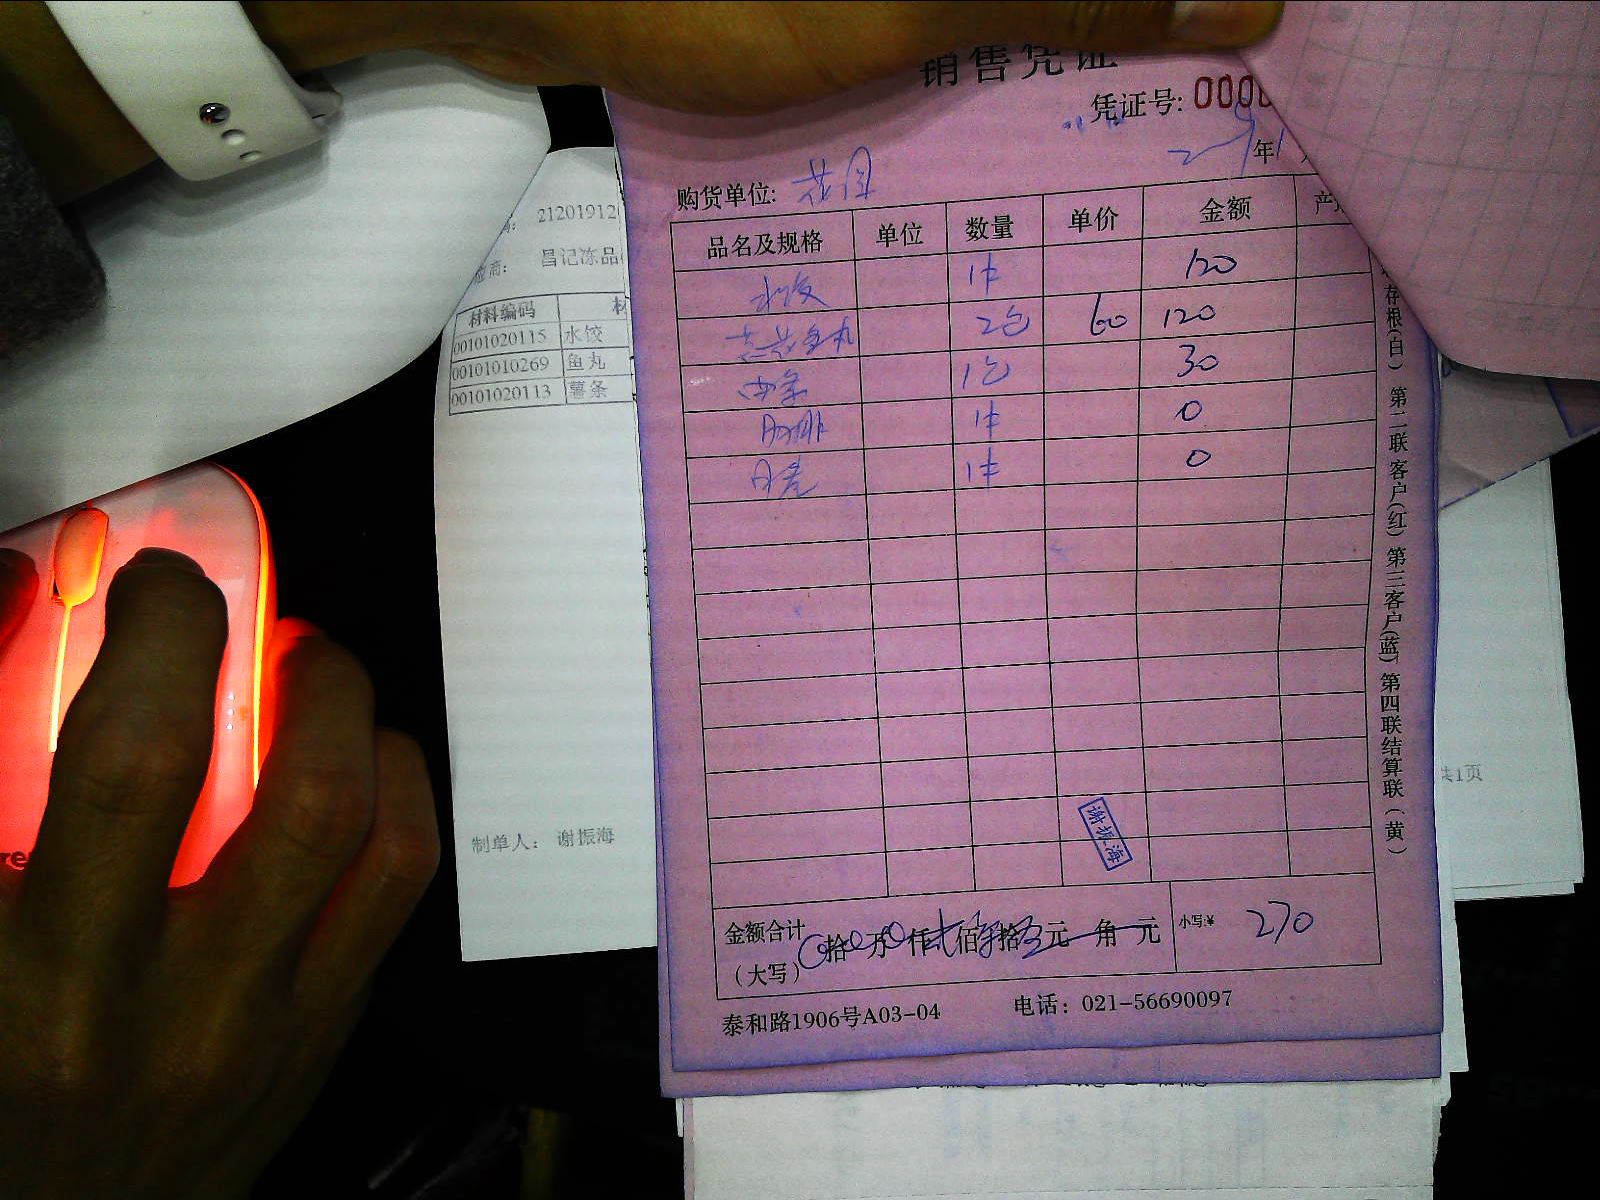 销售凭证
凭证号: 000
年
购货单位: 花园
品名及规格 单位 数量 单价 金额 产
水饺 1件 120
2包 60 120
1包 30
1件 0
1件 0
金额合计
(大写)
拾 万 仟 贰 佰 拾 元 角 元 小写:¥ 270
泰和路1906号A03-04 电话: 021-56690097
存根(白) 第二联客户(红) 第三客户(蓝) 第四联结算联(黄)
谢振海
21201912
应商: 昌记冻品
材料编码 材
00101020115 水饺
00101010269 鱼丸
00101020113 薯条
制单人: 谢振海
共1页